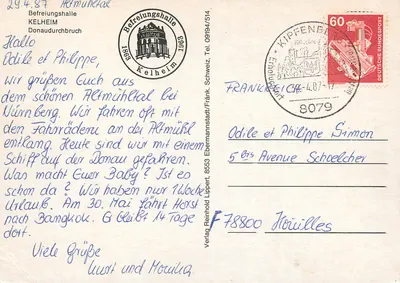 29.4.87 Altmühltal
Befreiungshalle
KELHEIM
Donaudurchbruch
Befreiungshalle
1863
Kelheim
Hallo
Odile et Philippe,
wir grüßen Euch aus
dem schönen Altmühltal bei
Nürnberg. Wir fahren oft mit
den Fahrrädern an der Altmühl
entlang. Heute sind wir mit einem
Schiff auf der Donau gefahren.
Was macht Euer Baby? Ist es
schon da? Wir haben nur 1 Woche
Urlaub. Am 30. Mai fährt Horst
nach Bangkok. Er bleibt 14 Tage
dort.
Viele Grüße
Kurt und Monika
Verlag Reinhold Lippert, 8553 Ebermannstadt/Fränk. Schweiz, Tel. 09194/514
KIPFENBERG
8079
60
DEUTSCHE BUNDESPOST
FRANKREICH
Odile et Philippe Simon
5 bis Avenue Schoelcher
F 78800 Houilles